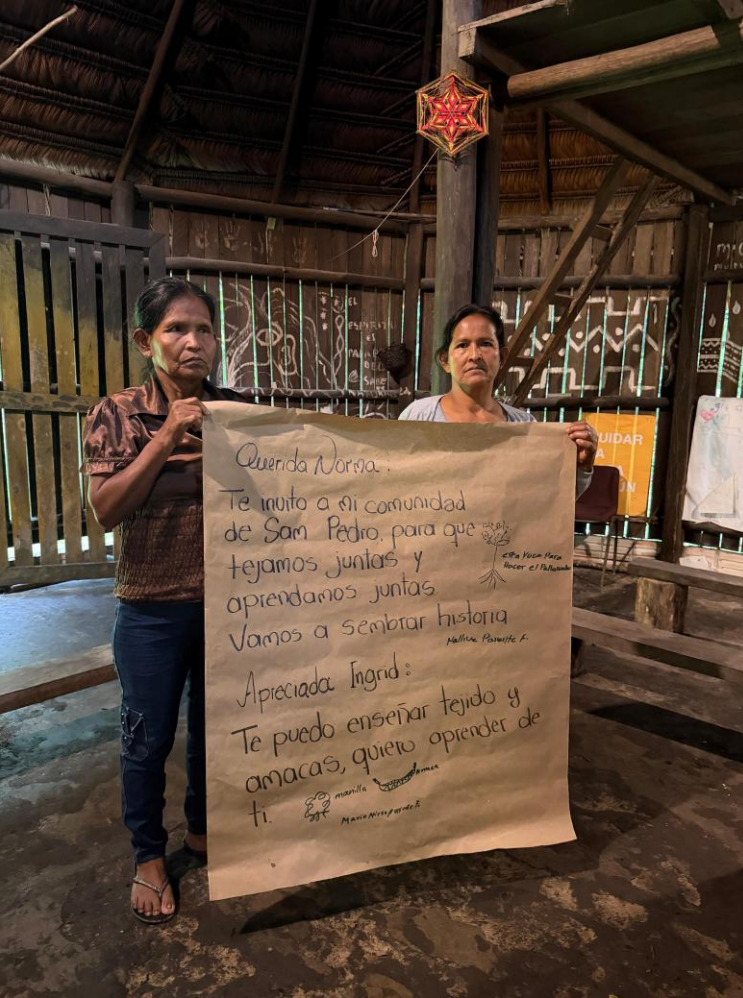 Querida Norma:
Te invito a mi comunidad
de Sam Pedro, para que
tejamos juntas y
aprendamos juntas
Vamos a sembrar historia
esta Yuca Para
Hacer el
Apreciada Ingrid:
Te puedo enseñar tejido y
amacas, quiero aprender de
ti.
manilla
EL
ESPIRITU
ES
CUIDAR